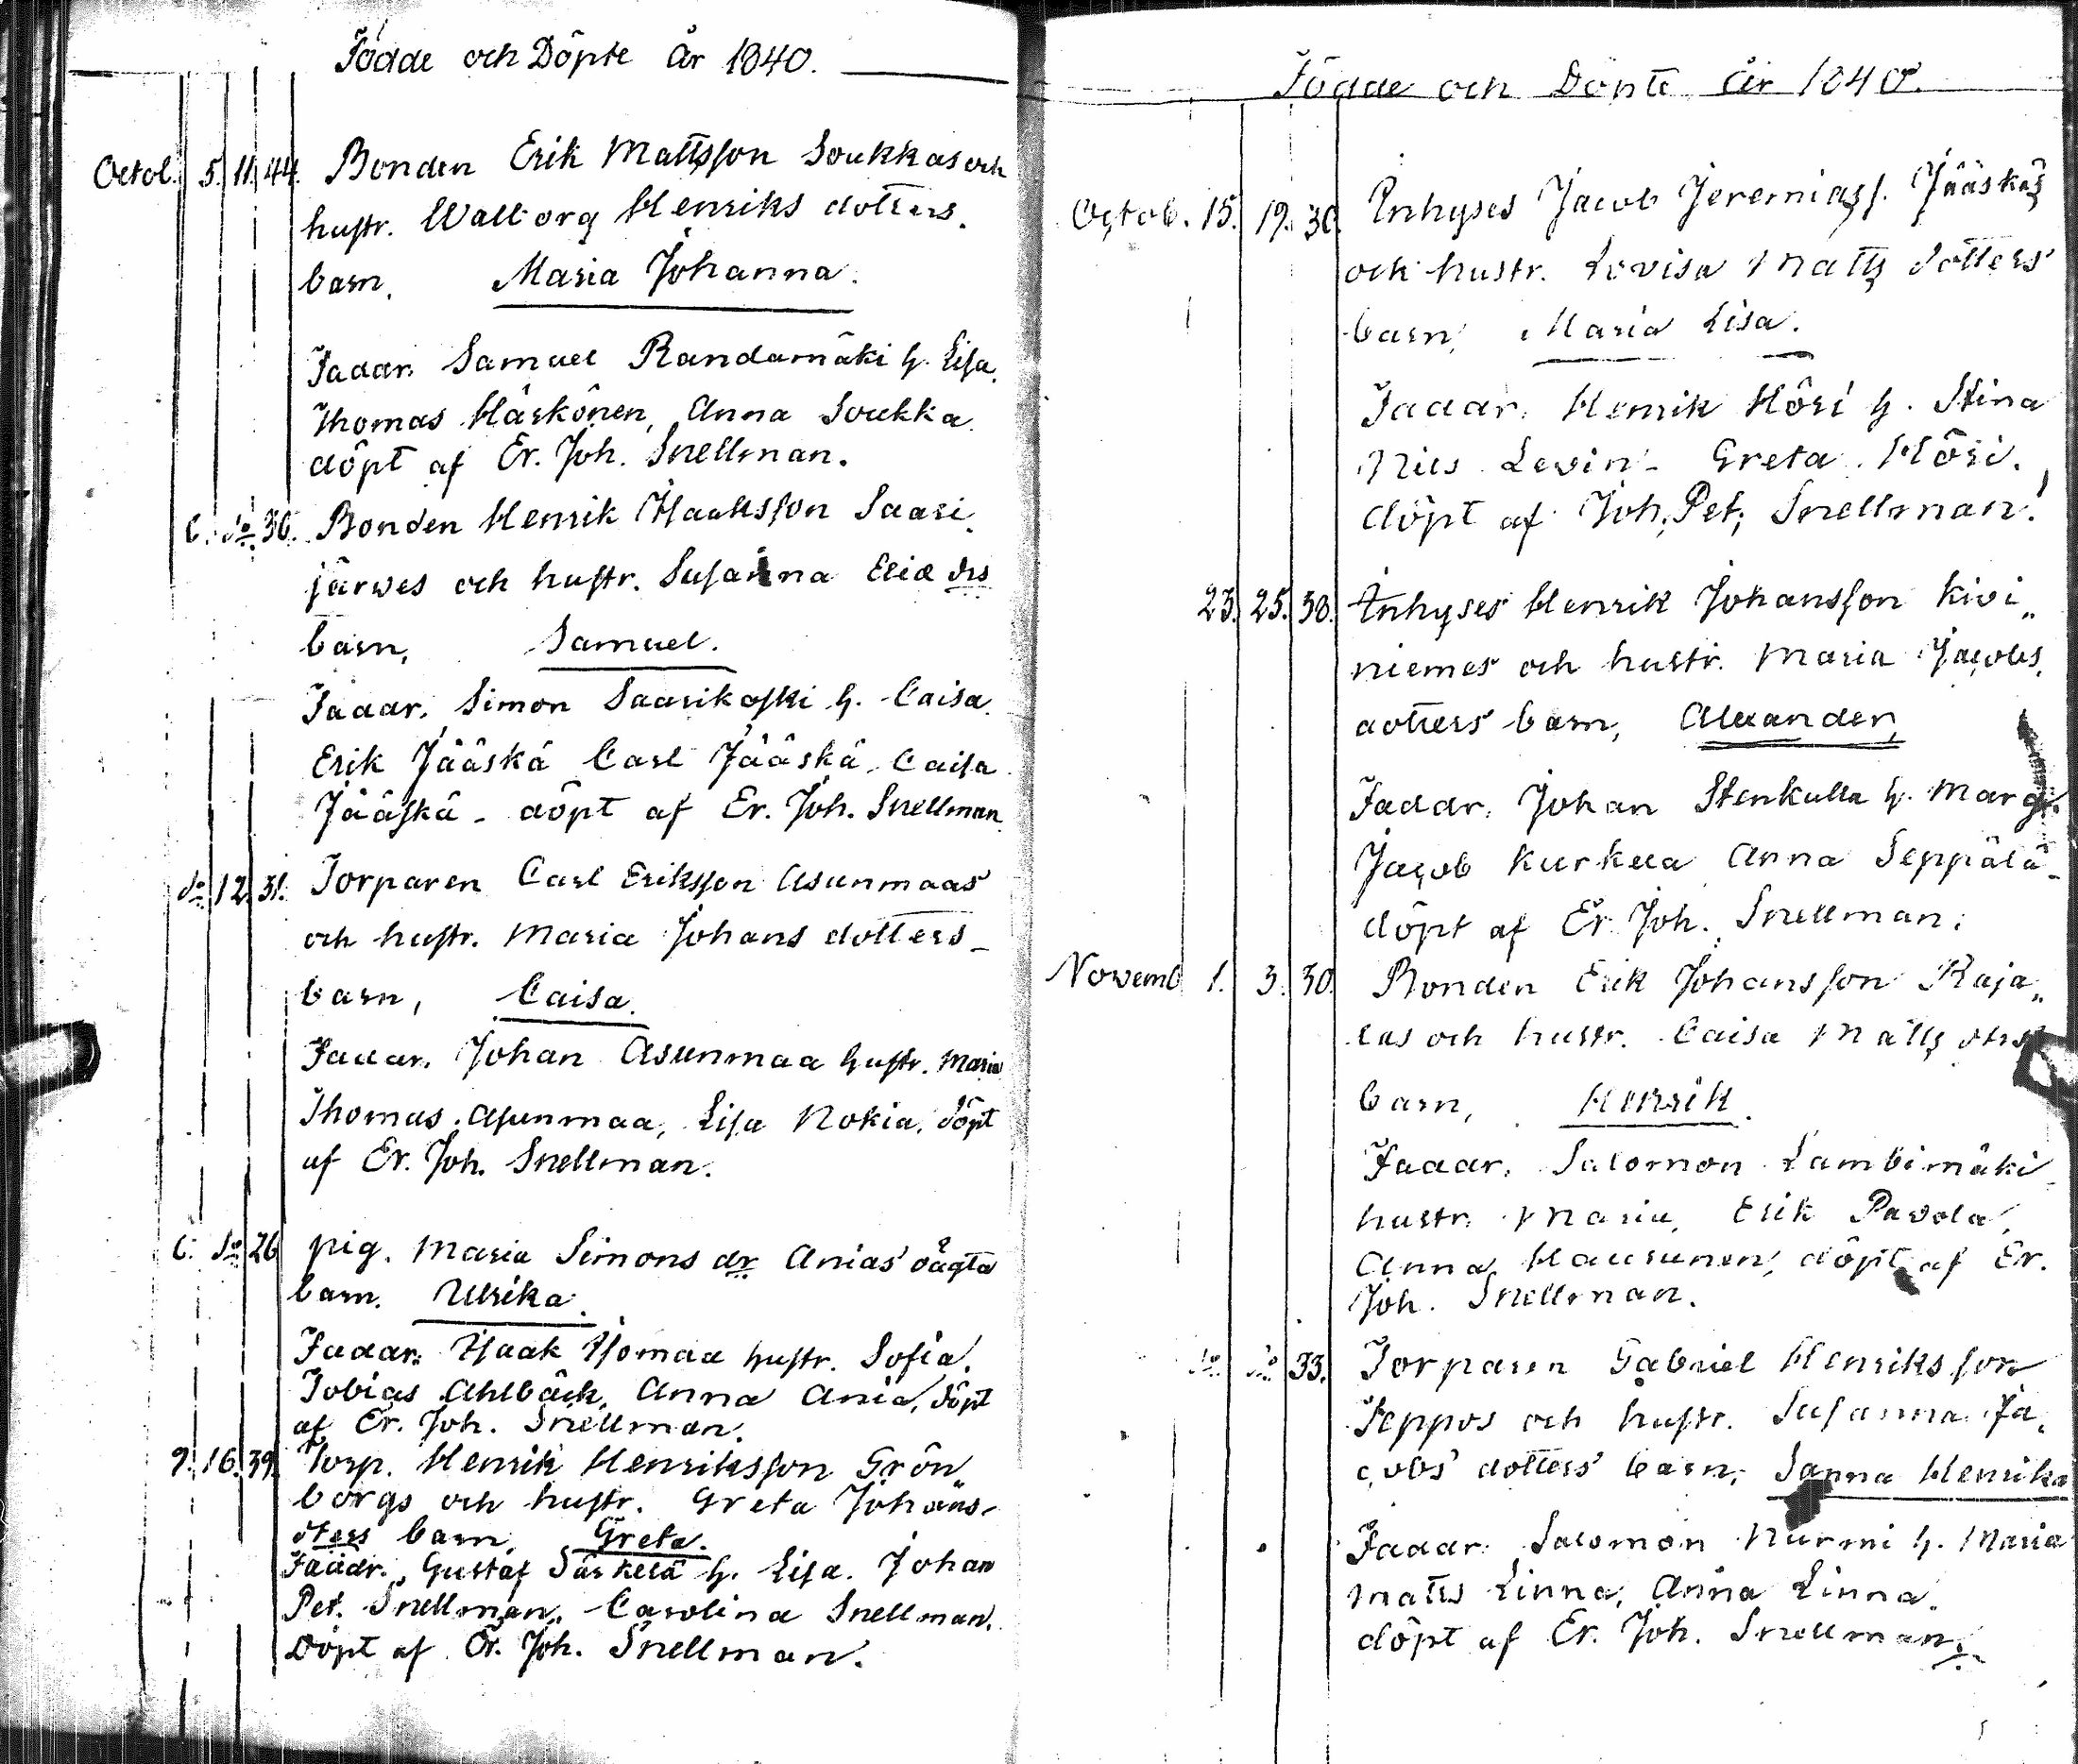 Födde och Döpte År 1840.
Octob. 5. 11. 44. Bonden Erik Mattsson Soukkas och
hustr. Walborg Henriks dotters.
barn, Maria Johanna.
Faddr. Samuel Randamäki h. Lisa.
Thomas Härkönen, Anna Soukka
döpt af Er. Joh. Snellman.
6. do 36. Bonden Henrik Isaaksson Saari
järwes och hustr. Susanna Eliæ drs
barn, Samuel.
Faddr. Simon Saarikoski h. Caisa.
Erik Jääskä Carl Jääskä. Caisa
Jääskä - döpt af Er. Joh. Snellman.
do 12. 31. Torparen Carl Eriksson Asunmaas
och hustr. Maria Johans dotters-
barn, Caisa.
Faddr. Johan Asunmaa hustr. Maria
Thomas Asunmaa, Lisa Nokia. döpt
af Er. Joh. Snellman.
6. do 26 pig. Maria Simons dr Anias oägta
barn. Ulrika.
Faddr. Isaak Isomaa hustr. Sofia.
Tobias Ahlbäck, Anna Ania, döpt
af Er. Joh. Snellman.
9. 16. 39. Torp. Henrik Henriksson Grön
borgs och hustr. Greta Johans-
dters barn, Greta.
Faddr. Gustaf Särkelä h. Lisa. Johan
Pet. Snellman. Carolina Snellman.
Döpt af Er. Joh. Snellman.
Födde och Döpte År 1840.
Octob. 15. 19. 30. Inhyses Jacob Jeremiass. Jääskäs
och hustr. Lovisa Matts dotters
barn, Maria Lisa.
Faddr. Henrik Höri h. Stina
Nils Levin - Greta Höri.
döpt af Joh. Pet. Snellman.
23. 25. 38. Inhyses Henrik Johansson Kivi„
niemes och hustr. Maria Jacobs
dotters barn, Alexander,
Faddr. Johan Stenkulla h. Marg.
Jacob Kurkela Anna Seppälä-
döpt af Er. Joh. Snellman.
Novemb 1. 3. 30. Bonden Erik Johansson Raja„
las och hustr. Caisa Matts dtrs
barn, Henrik.
Faddr. Salomon Lambimäki
hustr. Maria, Erik Pavola,
Anna döpt af Er.
Joh. Snellman.
do do 33. Torparen Gabriel Henriksson
Seppos och hustr. Susanna Ja„
cobs dotters barn, Sanna Henrika
Faddr. Salomon Nurmi h. Maria
Matts Linna, Anna Linna.
döpt af Er. Joh. Snellman.